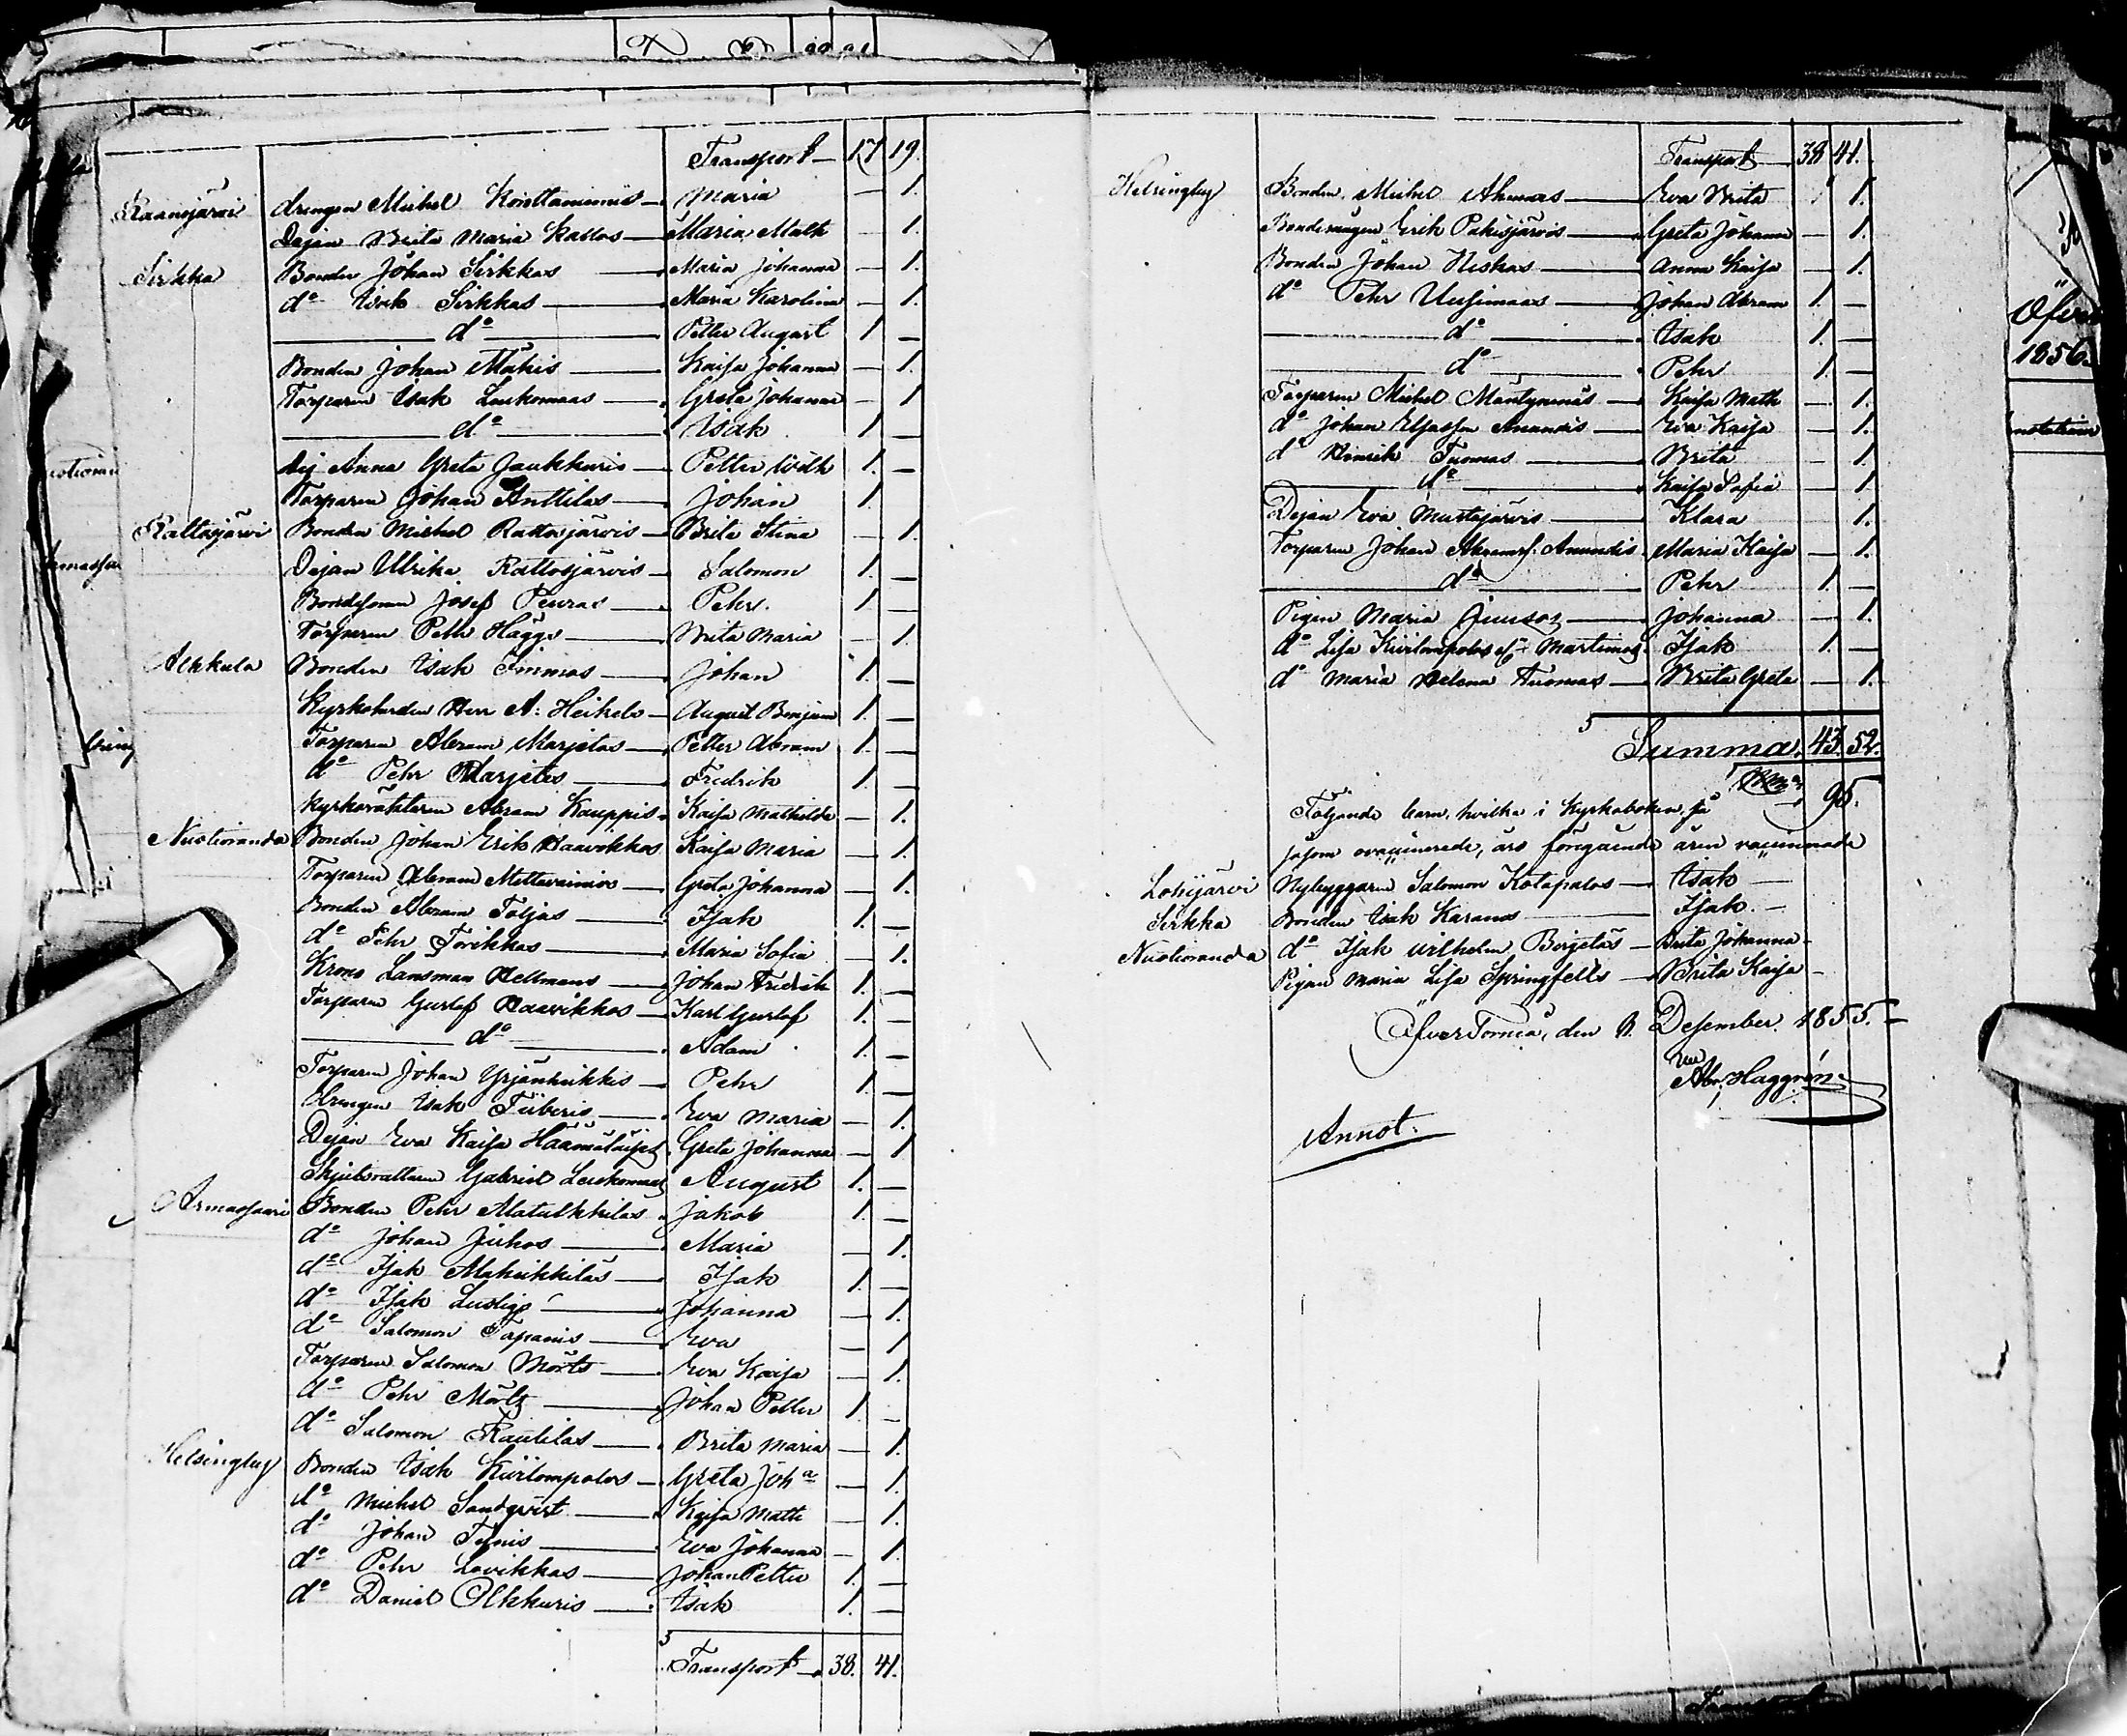 Transport 17 19.
Raanujärvi drengen Michel Konttaniemis Maria — 1.
Dejan Brita Maria Kallos Maria Math — 1.
Sirkka Bonden Johan Sirkkas Maria Johanna — 1.
do Isak Sirkkas Maria Karolina — 1.
do Petter August 1 —
Bonden Johan Mäkis Kaisa Johanna — 1.
Torparen Isak Laukomaas Greta Johanna — 1
do Isak 1 —
Anna Greta Jaukkuris Petter 1. —
Torparen Johan Anttilas Johan 1.
Rattosjärvi Bonden Michel Rattosjärvis Brita Stina — 1.
Dejan Ulrika Rattosjärvis Salomon 1. —
Bondesonen Josef Peuras Pehr. 1 —
Torparen Petter Häggs Brita Maria — 1.
Alkkula Bonden Isak Simmas Johan 1. —
Kyrkoherden Herr A. Heikels August Benjam 1. —
Torparen Abram Marjetas Petter Abram 1. —
do Pehr Marjetas Fredrik 1. —
Kyrkoväktaren Abram Kauppis Kaisa Mathilda — 1.
Nuotioranda Bonden Johan Erik Haavikkos Kaisa Maria — 1.
Torparen Abram Mettavainios Greta Johanna — 1.
Bonden Abram Toljas Isak 1. —
do Pehr Törikkas Maria Sofia — 1.
Krono Länsman Hellmans Johan Fredrik 1. —
Torparen Gustaf Haavikkos Karl Gustaf 1. —
do Adam 1. —
Torparen Johan Yrjänheikkis Pehr 1 —
drengen Isak Fiiberis Eva Maria — 1.
Dejan Eva Kaisa Greta Johanna — 1
Gabriel Laukomaas August 1. —
Armassaari Bonden Pehr Alatulkkilas Jakob 1. —
do Johan Juhos Maria — 1.
do Isak Alaheikkiläs Isak 1. —
do Isak Lustigs Johanna — 1.
do Salomon Tapanis Eva — 1
Torparen Salomon Mörts Eva Kaisa — 1.
do Pehr Mörts Johan Petter 1 —
do Salomon Rautilas Brita Maria — 1.
Helsingby Bonden Isak Kiirlompolos Greta Joha — 1.
do Michel Sandqvist Kaisa Math — 1.
do Johan Eva Johanna — 1.
do Pehr Lavikkas Johan Petter 1. —
do Daniel Olkkuris Isak 1. —
Transport 38. 41.
Transport 38 41.
Helsingby Bonden Michel Ahmas Eva Brita 1.
Bondemågen Erik Pakisjärvis Greta Johanna — 1.
Bonden Johan Niskas Anna Kaisa — 1.
do Pehr Uusimaas Johan Abram 1. —
do Isak 1. —
do Pehr 1. —
Torparen Michel Mäntyniemis Kaisa Math — 1.
do Johan Anundis Eva Kaisa — 1.
do Henrik Tuomas Brita — 1.
do Kaisa Sofia — 1.
Dejan Eva Mustajärvis Klara 1.
Torparen Johan Abramss. Anundis Maria Kaisa — 1.
do Pehr 1. —
Pigan Maria Johanna — 1.
do Lisa Kiirlompolos Martimos Isak 1. —
do Maria Helena Tuomas Brita Greta — 1.
Summa. 43. 52.
95.
Följande barn, hvilka i Kyrkoboken stå
såsom ovaccinerade, äro föregående åren vaccinerade
Lohijärvi Nybyggaren Salomon Kotapalos Isak —
Sirkka Bonden Isak Karanos Isak —
Nuotioranda do Isak Wilhelm Birjetas Brita Johanna
Pigan Maria Lisa Springfelts Brita Kaisa —
ÖfverTorneå, den Desember 1855.
Abr. Häggrén
Annot.
Öfver
1856.